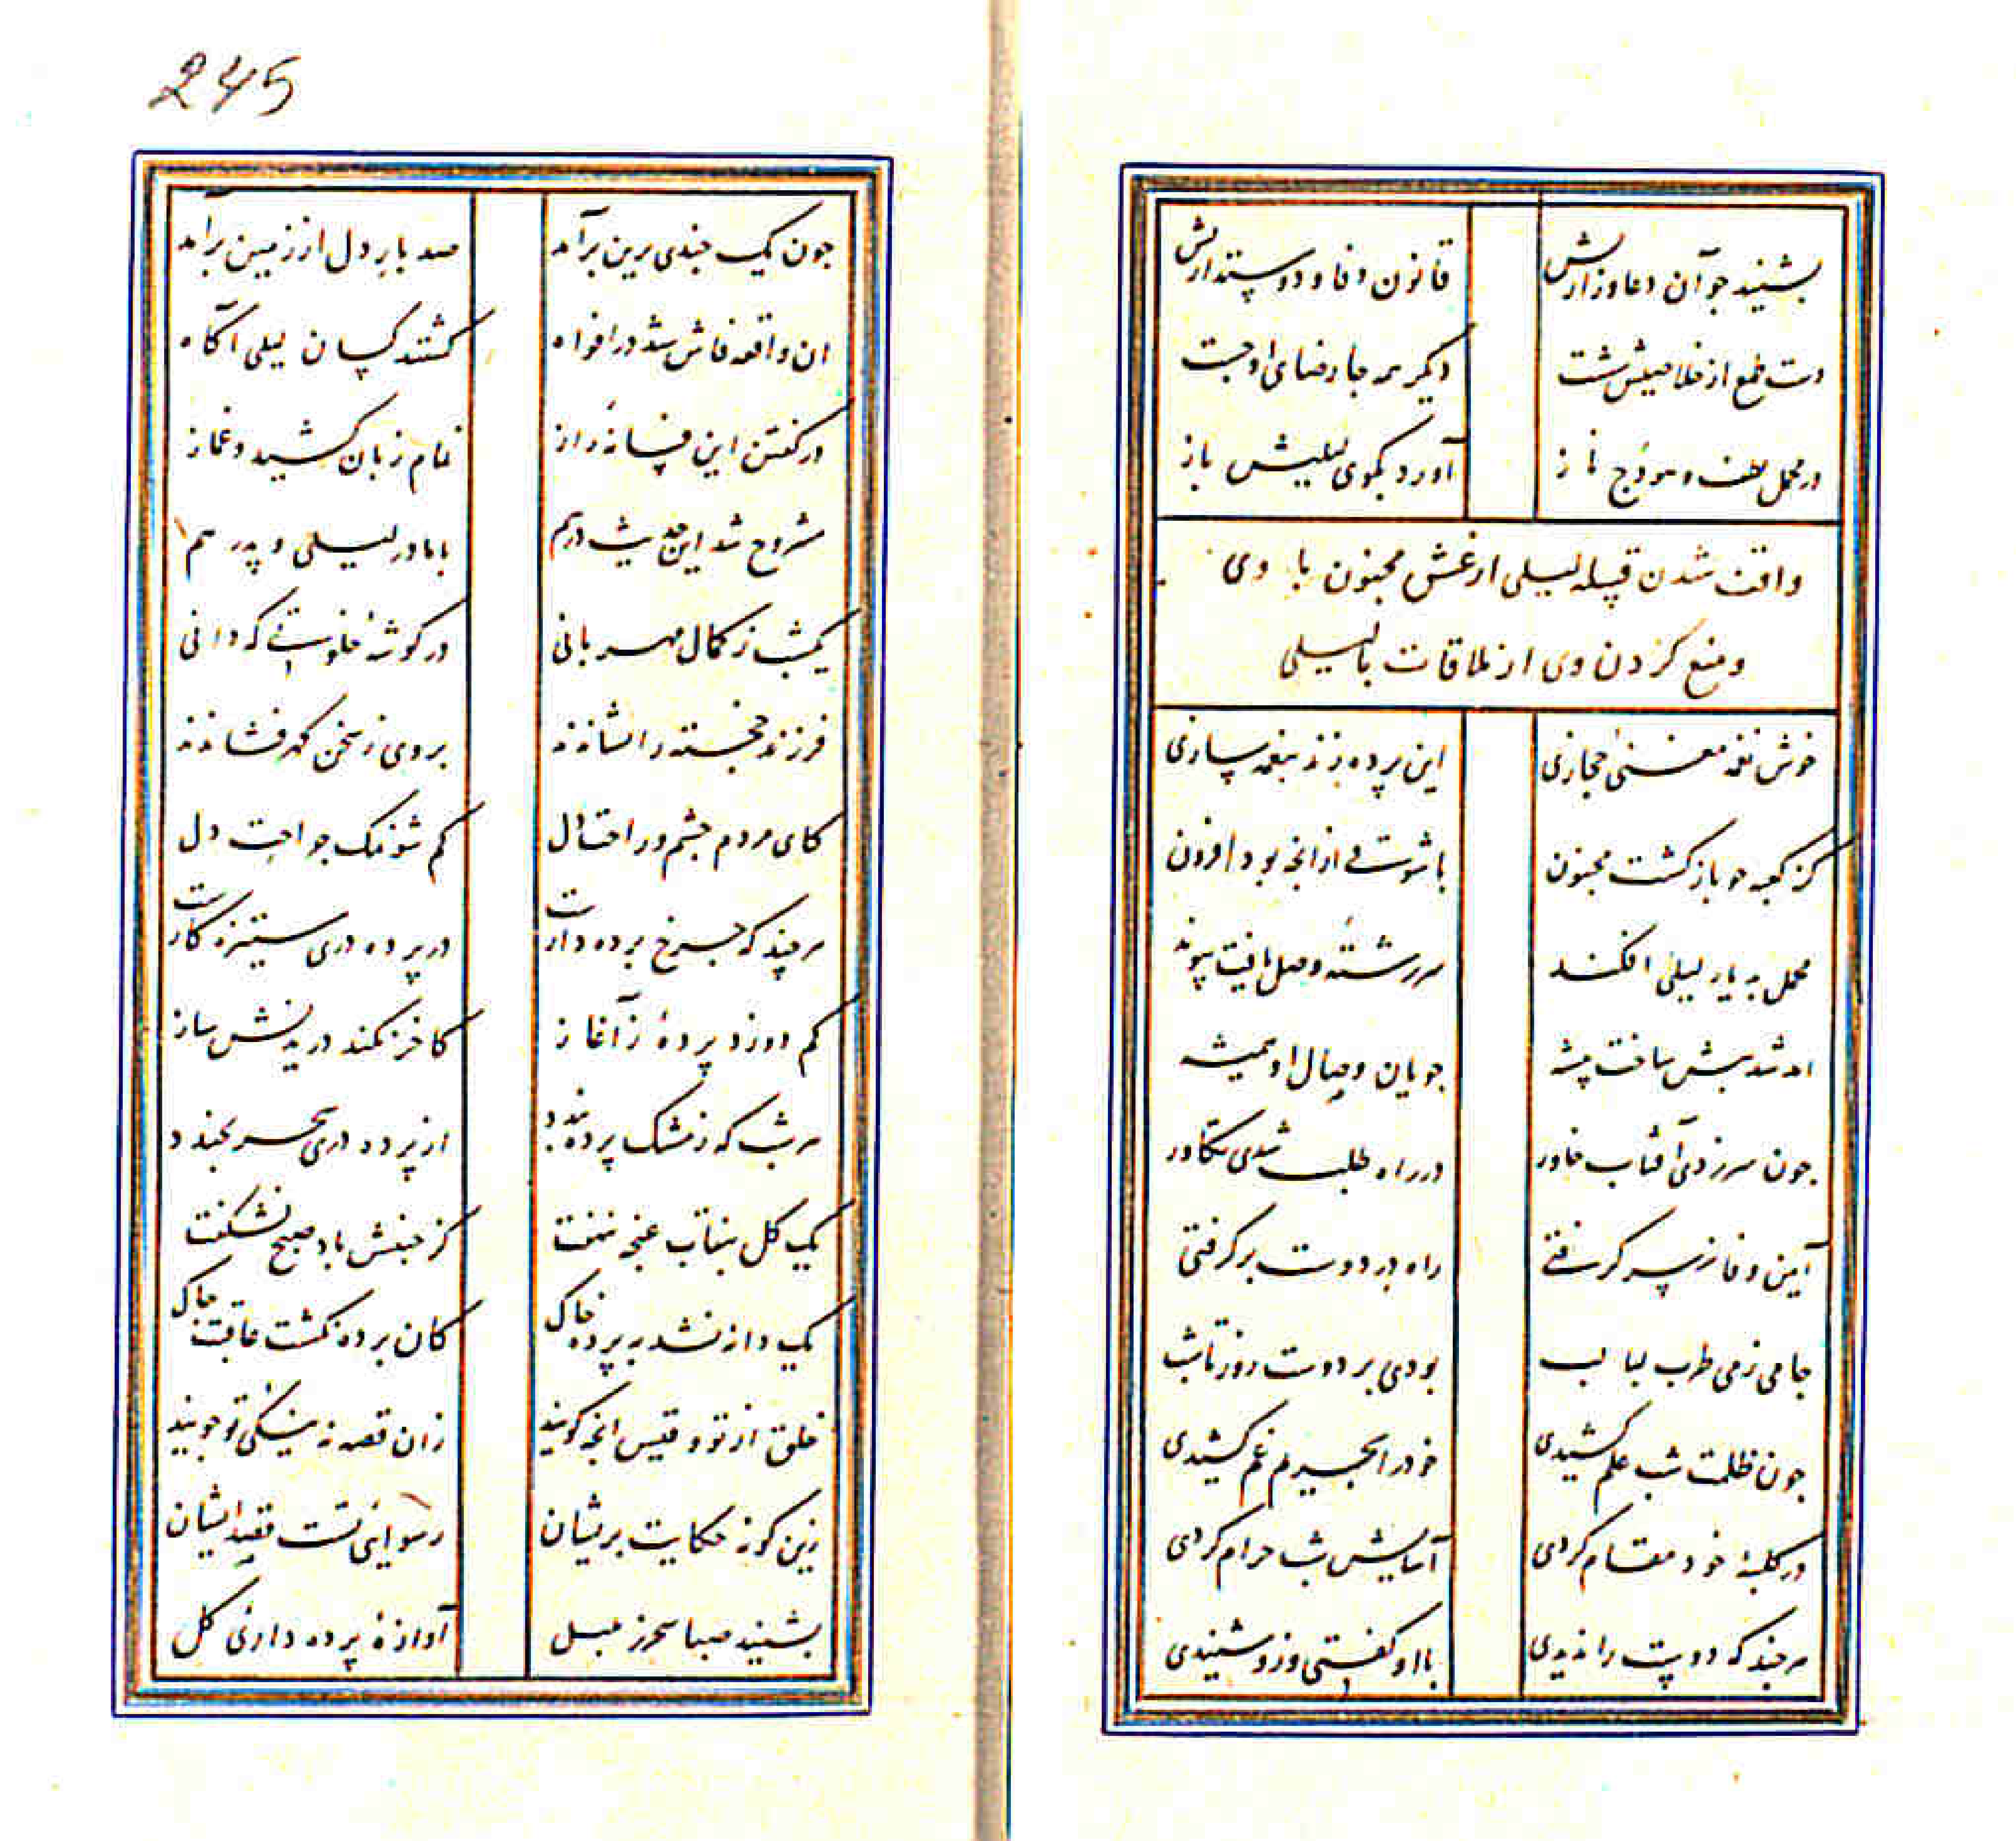 بشنید جو آن دعا و زاریش قانون وفا و دوستداریش
دست طمع از خلاصیش شست دیکر همه جا رضای او جست
در محمل لطف و هودج ناز آورد بکوی لیلیش باز
واقف شدن قبیله لیلی از عشق مجنون با وی
و منع کردن وی از ملاقات با لیلی
خوش نغمه مغنی حجازی این پرده زند بنغمه سازی
کز کعبه جو باز کشت مجنون با شوقی از انجه بود افزون
محمل به دیار لیلی افکند سررشته وصل یافت پیوند
آمد شد پیش ساخت پیشه جویان وصال او همیشه
جون سر زدی آفتاب خاور در راه طلب شدی تکاور
آیین وفا ز سر کرفتی راه در دوست بر کرفتی
جامی ز می طرب لبالب بودی بر دوست روز تا شب
جون ظلمت شب علم کشیدی خود را بحریم غم کشیدی
در کلبهٔ خود مقام کردی آسایش شب حرام کردی
هر جند که دوست را ندیدی با او کفتی وزو شنیدی
245
جون یک جندی برین برآمد صد بار دل از زمین برآمد
ان واقعه فاش شد در افواه کشتند کسان لیلی آکاه
در کفتن این فسانهٔ راز نمام زبان کشید و غماز
مشروح شد این حدیث درهم با مادر لیلی و پدر هم
یکشب ز کمال مهربانی در کوشهٔ خلوتی که دانی
فرزند خجسته را نشاندند بر وی ز سخن کهر فشاندند
کای مردم جشم و راحت دل کم شو نمک جراحت دل
هر چند که جرخ برده دارست در پرده دری ستیزه کارست
کم دوزد پردهٔ ز آغاز کاخر نکند دریدنش ساز
هر شب که ز مشک پرده بندد از پرده دری سحر بخندد
یک کل بنقاب غنجه ننهفت کز جنبش باد صبح نشکفت
یک دانه نشد به پرده خاک کان برده نکشت عاقبت جاک
خلق از تو و قیس انجه کویند زان قصه نه نیکی تو جویند
زین کونه حکایت بریشان رسوایی تست قصد ایشان
بشنید صبا سحر ز بلبل آوازهٔ پرده داری کل